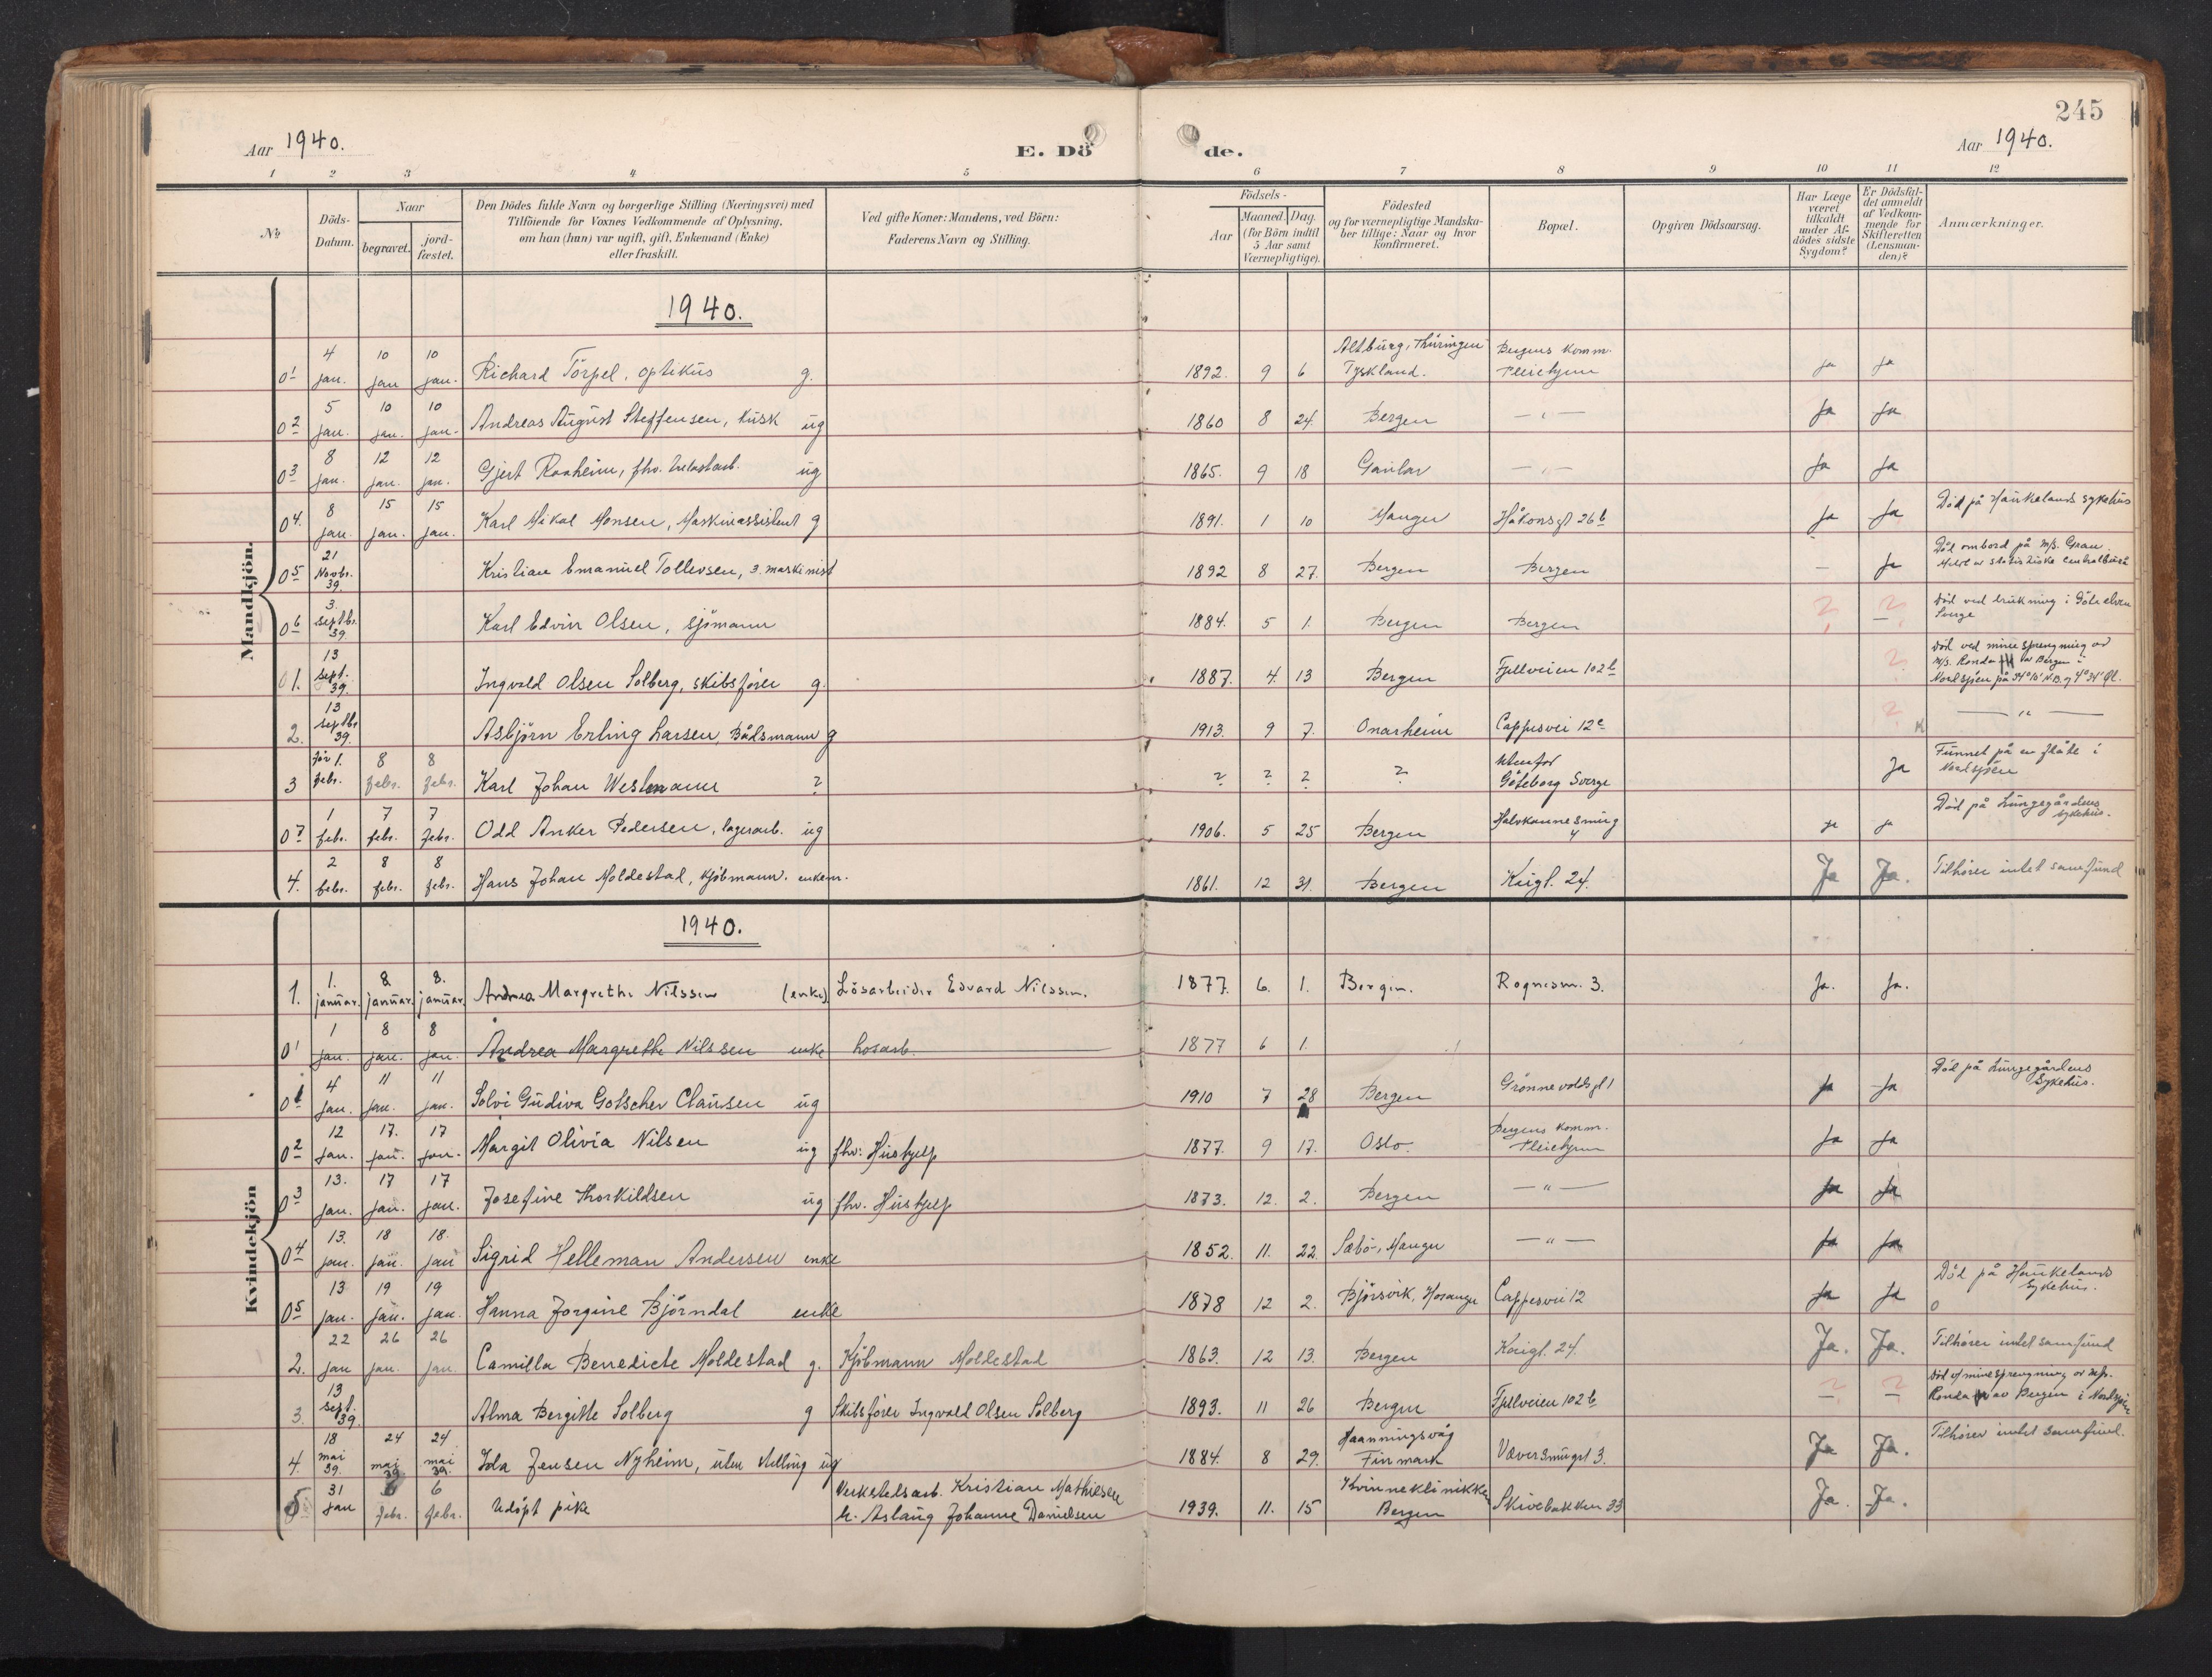 245
Aar 1940.
E. Döde.
Aar 1940.
1 2 3 4 5 6 7 8 9 10 11 12
No
Döds-Datum.
Naar
begravet.
jord-fæstet.
Den Dödes fulde Navn og borgerlige Stilling (Næringsvei) med
Tilföiende for Voxnes Vedkommende af Oplysning,
om han (hun) var ugift, gift, Enkemand (Enke)
eller fraskilt.
Ved gifte Koner: Mandens, ved Börn:
Faderens Navn og Stilling.
Födsels-
Aar
Maaned. Dag.
(for Börn indtil
5 Aar samt
Værnepligtige).
Födested
og for værnepligtige Mandska-
ber tillige: Naar og hvor
konfirmeret.
Bopæl.
Opgiven Dödsaarsag.
Har Læge
været
tilkaldt
under Af-
dödes sidste
Sygdom?
Er Dödsfal-
det anmeldt
af Vedkom-
mende for
Skifteretten
(Lensman-
den)?
Anmærkninger.
Mandkjön.
1940.
01 4 jan. 10 jan 10 jan. Richard Törpel, optikus g. 1892. 9 6 Altburg, Thüringen Tyskland. Bergens komm. Pleiehjem Ja Ja
02 5 jan. 10 jan. 10 jan. Andreas August Steffensen, kusk ug 1860 8 24. Bergen — " — Ja Ja
03 8 jan. 12 jan. 12 jan. Gjert Raaheim, fhv. ug 1865. 9 18 Gaular — " — Ja Ja
04. 8 jan. 15 jan. 15 jan. Karl Mikal Monsen, Maskinassistent g 1891. 1 10 Manger Håkonsgt 26b Ja Ja Död på Haukelands sykehus
05 21 Novbr. 39. Kristian Emanuel Tollevsen, 3. maskinist 1892 8 27. Bergen Bergen — Ja Död ombord på M/S. Gran. Meldt av statistiske centralbürå
06 3. septbr. 39. Karl Edvin Olsen, sjömann 1884. 5 1. Bergen Bergen ? ? Död ved drukning i Göta elven Sverge
01. 13 sept. 39. Ingvald Olsen Solberg, skibsförer g. 1887. 4. 13 Bergen Fjellveien 102b ? Död ved minesprengning av M/S. Ronda av Bergen i Nordsjöen på 54°10' N.B. og 4°34' Øl.
2. 13 septbr 39. Asbjörn Erling Larsen, Båtsmann g 1913. 9 7. Onarheim Cappesvei 12c ? — " —
3 för 1. febr. 8 febr. 8 febr. Karl Johan Westmann ? ? ? ? ? utenfor Göteborg Sverge Ja Funnet på en flåte i Nordsjöen
07 1 febr. 7 febr. 7 febr. Odd Anker Pedersen, lagerarb. ug 1906. 5 25 Bergen Halvkannesmug 4 Ja Ja Död på Lungegårdens sykehus.
4. 2 febr. 8 febr. 8 febr. Hans Johan Moldestad, kjöbmann. enkem. 1861. 12 31. Bergen Kaigt. 24. Ja Ja. Tilhörer intet samfund
Kvindekjön
1940.
1. 1. januar. 8. januar. 8. januar. Andrea Margrethe Nilssen (enke) Lösarbeider Edvard Nilssen. 1877. 6. 1. Bergen. Rognesm. 3. Ja. Ja.
01 1 jan. 8 jan. 8 jan. Andrea Margrethe Nilssen enke Losarb. 1877 6 1.
01 4 jan. 11 jan. 11 jan. Solvi Gudiva Gotscher Clausen ug 1910 7 28 Bergen Grønnevoldsgt 1 Ja Ja Död på Lungegårdens Sykehus.
02 12 jan. 17. jan. 17 jan. Margit Olivia Nilsen ug fhv: Hushjelp 1877. 9 17. Oslo. Bergens komm. Pleiehjem Ja Ja
03 13. jan. 17 jan. 17 jan. Josefine Thorkildsen ug fhv. Hushjelp 1873. 12. 2. Bergen — " — Ja Ja
04 13. jan. 18 jan. 18. jan Sigrid Helleman Andersen enke 1852. 11. 22. Sæbö, Manger — " — Ja Ja
05 13 jan. 19 jan. 19 jan. Hanna Jorgine Björndal enke 1878 12 2. Björsvik, Hosanger Cappesvei 12 Ja Ja Död på Haukelands Sykehus. 0
2. 22 jan 26 jan. 26 jan. Camilla Benedicte Moldestad g. Kjöbmann Moldestad 1863. 12 13. Bergen Kaigt. 24. Ja. Ja. Tilhörer intet samfund
3. 13 sept. 39. Alma Bergitte Solberg g Skibsförer Ingvald Olsen Solberg 1893. 11 26 Bergen Fjellveien 102b ? ? Död v/ minesprengning av M/S. Ronda av Bergen i Nordsjöen
4. 18 mai 39. 24 mai 39 24 mai 39. Ida Jensen Nyheim, uten stilling ug 1884. 8 29. Haanningsvåg Finmark Væversmugt 3. Ja Ja. Tilhörer intet samfund.
5 31 jan 6 febr. 6 febr. Udöpt pike Verkstedsarb. Kristian Mathiesen h. Aslaug Johanne Danielsen 1939. 11. 15 Kvinneklinikken Bergen Skivebakken 33 Ja. Ja.